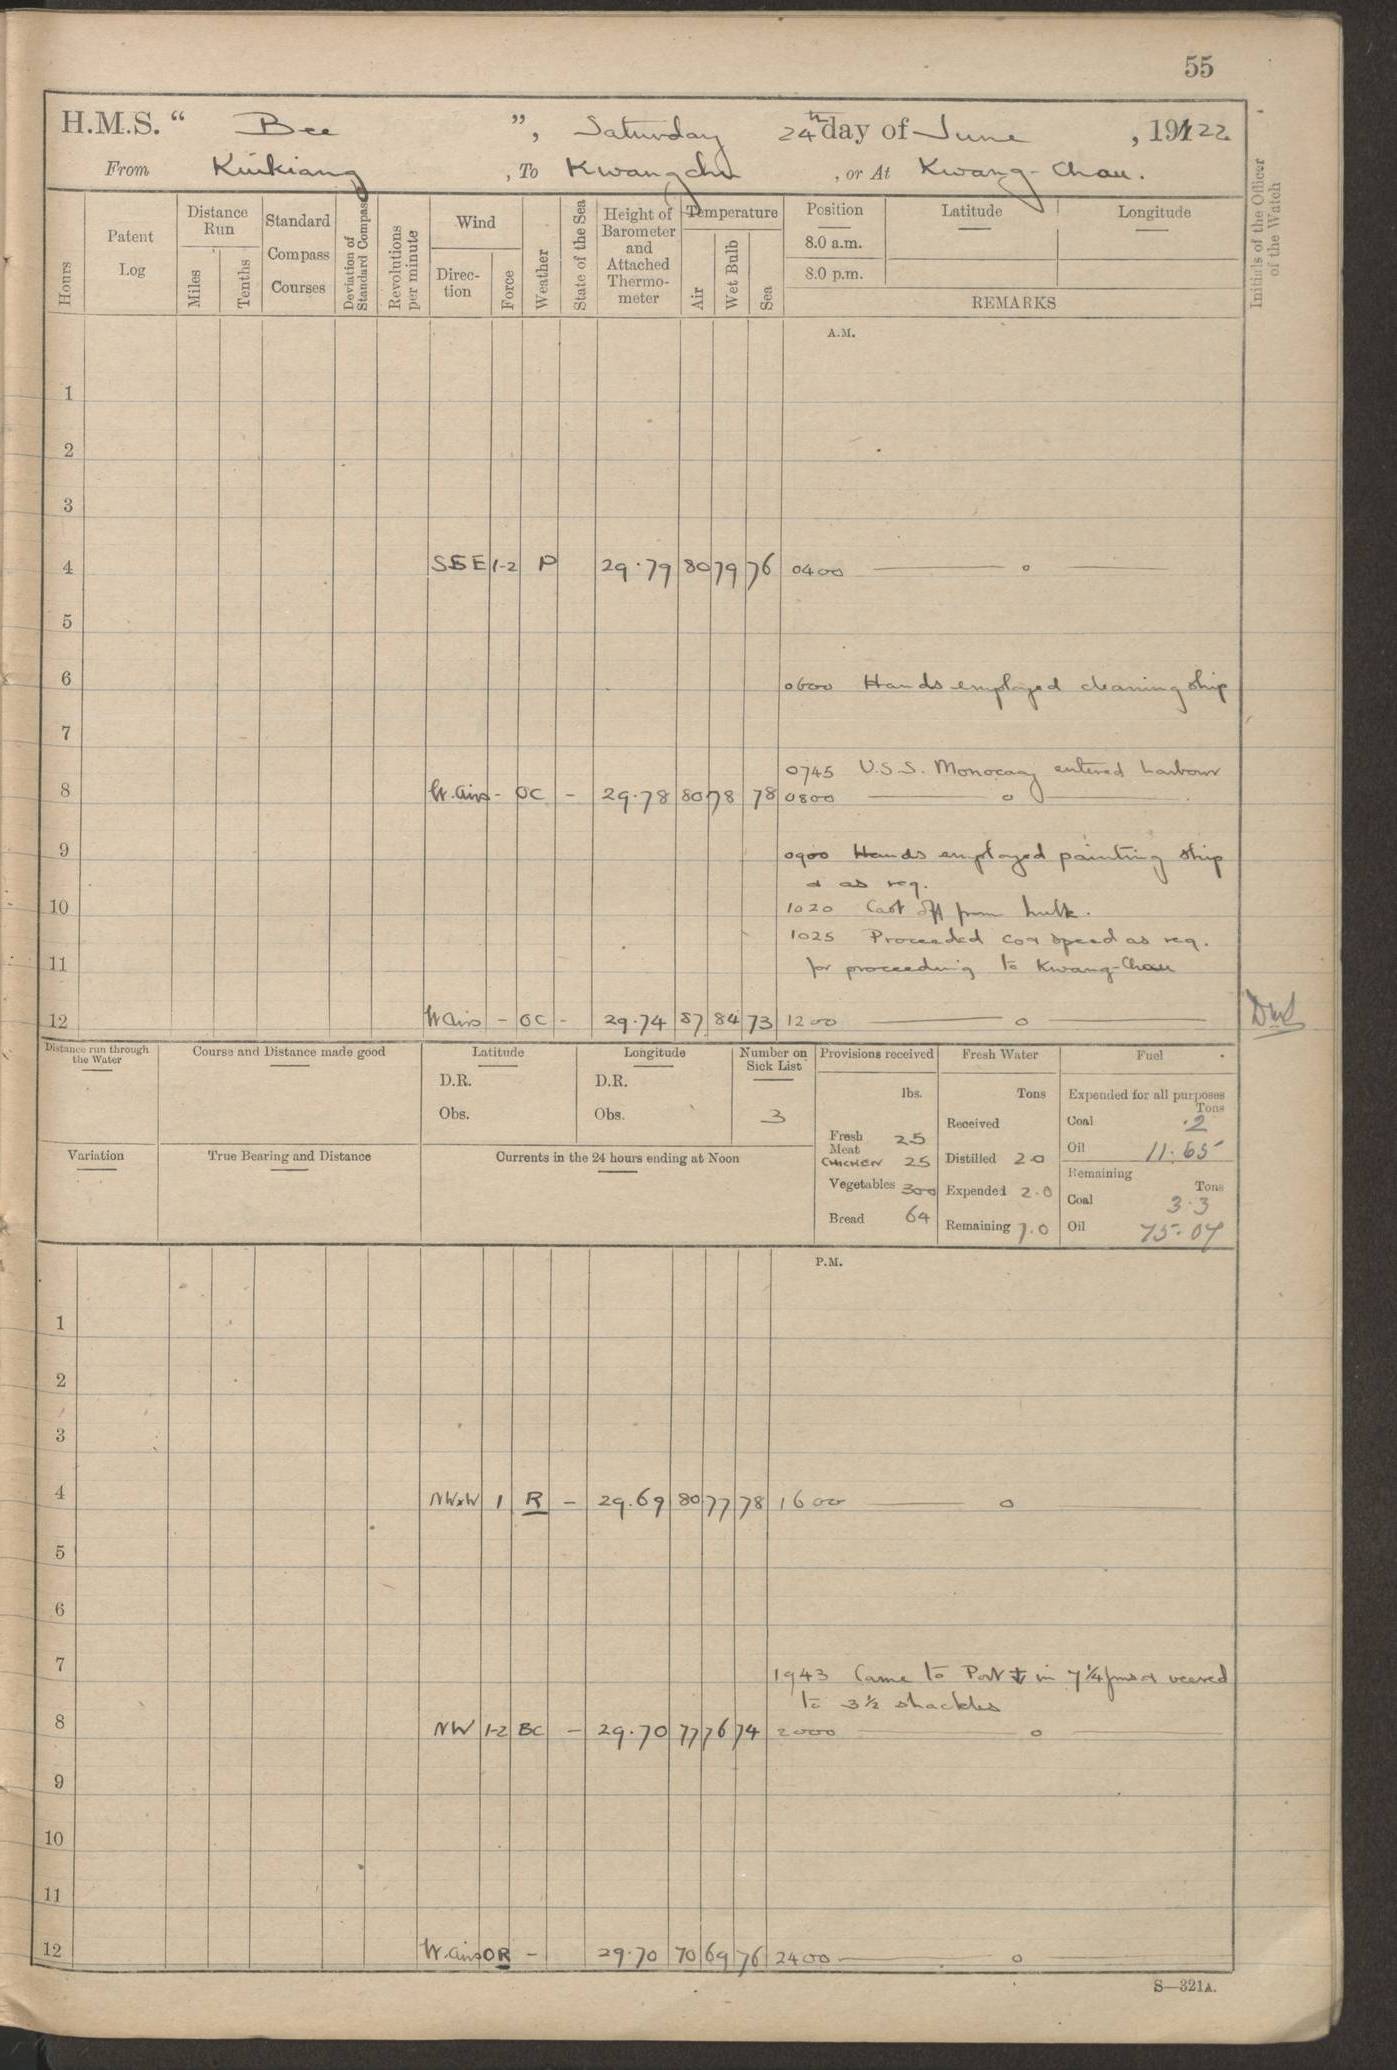 55
H.M.S. “ Bee ”, Saturday 24th day of June , 1922
From Kiukiang , To Kwangchu , or At Kwang-Chau.
Hours
Patent Log
Distance Run Miles Tenths
Standard Compass Courses
Deviation of Standard Compass
Revolutions per minute
Wind Direction Force
Weather
State of the Sea
Height of Barometer and Attached Thermometer
Temperature Air Wet Bulb Sea
Position Latitude Longitude
8.0 a.m.
8.0 p.m.
REMARKS
Initials of the Officer of the Watch
A.M.
1
2
3
4 SSE 1-2 P 29.79 80 79 76 0400 — o —
5
6 0600 Hands employed cleaning ship
7
0745 U.S.S. Monocacy entered harbour
8 W.airs - OC - 29.78 80 78 78 0800 — o —
9 0900 Hands employed painting ship
& as req.
10 1020 Cast off from hulk.
1025 Proceeded co & speed as req.
11 for proceeding to Kwang-Chau
12 W airs - OC - 29.74 87 84 73 1200 — o —
Distance run through the Water
Course and Distance made good
Latitude
D.R.
Obs.
Longitude
D.R.
Obs.
Number on Sick List
3
Variation
True Bearing and Distance
Currents in the 24 hours ending at Noon
Provisions received
lbs.
Fresh Meat 25
CHICKEN 25
Vegetables 300
Bread 64
Fresh Water
Tons
Received
Distilled 2.0
Expended 2.0
Remaining 7.0
Fuel
Expended for all purposes
Tons
Coal .2
Oil 11.65
Remaining
Tons
Coal 3.3
Oil 75.07
P.M.
1
2
3
4 NWxW 1 R - 29.69 80 77 78 1600 — o —
5
6
7 1943 Came to Port ⚓ in 7¼ fms & veered
to 3½ shackles
8 NW 1-2 BC - 29.70 77 76 74 2000 — o —
9
10
11
12 W.airs OR - 29.70 70 69 76 2400 — o —
S—321A.